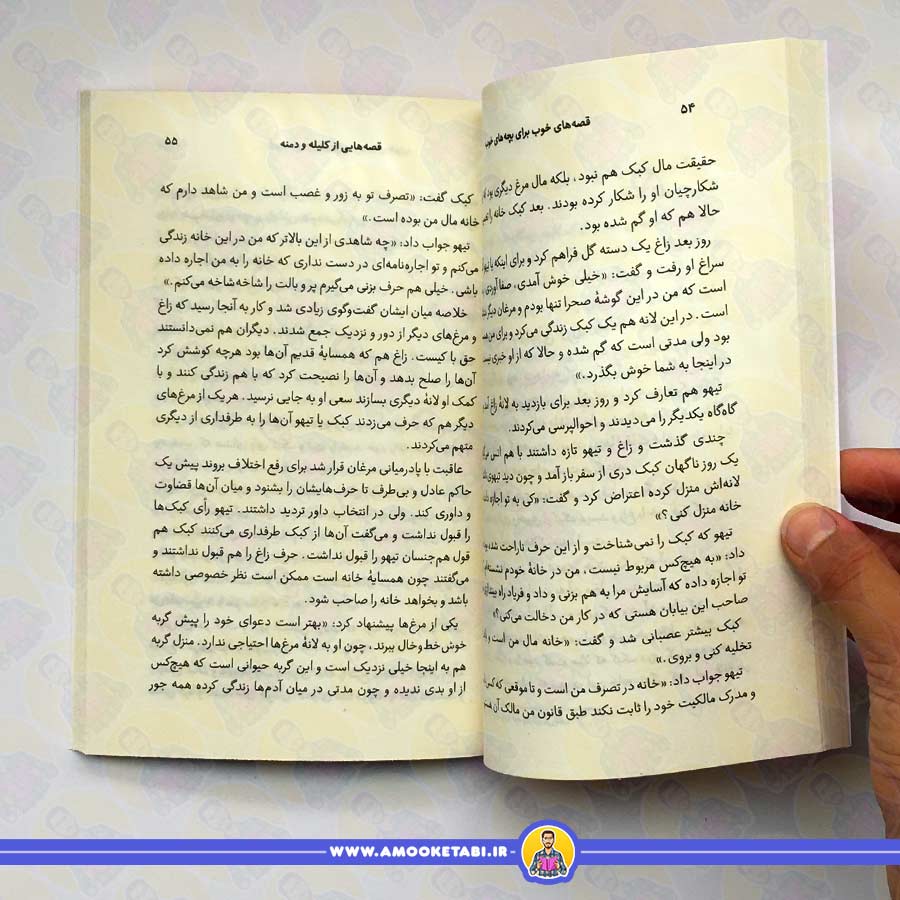 ۵۴
قصه‌های خوب برای بچه‌های خوب
حقیقت مال کبک هم نبود، بلکه مال مرغ دیگری بود
شکارچیان او را شکار کرده بودند. بعد کبک خانه را
حالا هم که او گم شده بود.
روز بعد زاغ یک دسته گل فراهم کرد و برای اینکه با
سراغ او رفت و گفت: «خیلی خوش آمدی، صفا آوردی،
است که من در این گوشهٔ صحرا تنها بودم و مرغان دیگر
است. در این لانه هم یک کبک زندگی می‌کرد و برای من
بود ولی مدتی است که گم شده و حالا که از او خبری
در اینجا به شما خوش بگذرد.»
تیهو هم تعارف کرد و روز بعد برای بازدید به لانهٔ زاغ
گاه‌گاه یکدیگر را می‌دیدند و احوالپرسی می‌کردند.
چندی گذشت و زاغ و تیهو تازه داشتند با هم انس
یک روز ناگهان کبک دری از سفر باز آمد و چون دید تیهوی
لانه‌اش منزل کرده اعتراض کرد و گفت: «کی به تو اجازه
خانه منزل کنی؟»
تیهو که کبک را نمی‌شناخت و از این حرف ناراحت شده
داد: «به هیچ‌کس مربوط نیست، من در خانهٔ خودم
تو اجازه داده که آسایش مرا به هم بزنی و داد و فریاد راه
صاحب این بیابان هستی که در کار من دخالت می‌کنی؟»
کبک بیشتر عصبانی شد و گفت: «خانه مال من است و
تخلیه کنی و بروی.»
تیهو جواب داد: «خانه در تصرف من است و تا موقعی که
و مدرک مالکیت خود را ثابت نکند طبق قانون من مالک آن
قصه‌هایی از کلیله و دمنه
۵۵
کبک گفت: «تصرف تو به زور و غصب است و من شاهد دارم که
خانه مال من بوده است.»
تیهو جواب داد: «چه شاهدی از این بالاتر که من در این خانه زندگی
می‌کنم و تو اجاره‌نامه‌ای در دست نداری که خانه را به من اجاره داده
باشی. خیلی هم حرف بزنی می‌گیرم پر و بالت را شاخه‌شاخه می‌کنم.»
خلاصه میان ایشان گفت‌وگوی زیادی شد و کار به آنجا رسید که زاغ
و مرغ‌های دیگر از دور و نزدیک جمع شدند. دیگران هم نمی‌دانستند
حق با کیست. زاغ هم که همسایهٔ قدیم آن‌ها بود هرچه کوشش کرد
آن‌ها را صلح بدهد و آن‌ها را نصیحت کرد که با هم زندگی کنند و با
کمک او لانهٔ دیگری بسازند سعی او به جایی نرسید. هر یک از مرغ‌های
دیگر هم که حرف می‌زدند کبک یا تیهو آن‌ها را به طرفداری از دیگری
متهم می‌کردند.
عاقبت با پادرمیانی مرغان قرار شد برای رفع اختلاف بروند پیش یک
حاکم عادل و بی‌طرف تا حرف‌هایشان را بشنود و میان آن‌ها قضاوت
و داوری کند. ولی در انتخاب داور تردید داشتند. تیهو رأی کبک‌ها
را قبول نداشت و می‌گفت آن‌ها از کبک طرفداری می‌کنند کبک هم
قول هم‌جنسان تیهو را قبول نداشت. حرف زاغ را هم قبول نداشتند و
می‌گفتند چون همسایهٔ خانه است ممکن است نظر خصوصی داشته
باشد و بخواهد خانه را صاحب شود.
یکی از مرغ‌ها پیشنهاد کرد: «بهتر است دعوای خود را پیش گربه
خوش خط‌وخال ببرند، چون او به لانهٔ مرغ‌ها احتیاجی ندارد. منزل گربه
هم به اینجا خیلی نزدیک است و این گربه حیوانی است که هیچ‌کس
از او بدی ندیده و چون مدتی در میان آدم‌ها زندگی کرده همه جور
WWW.AMOOKETABI.IR